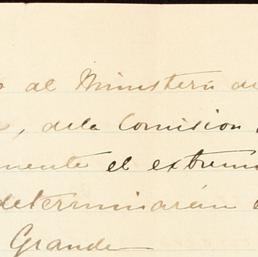 al Ministerio de
, de la Comision
mente el extremo
determinarán
Grande